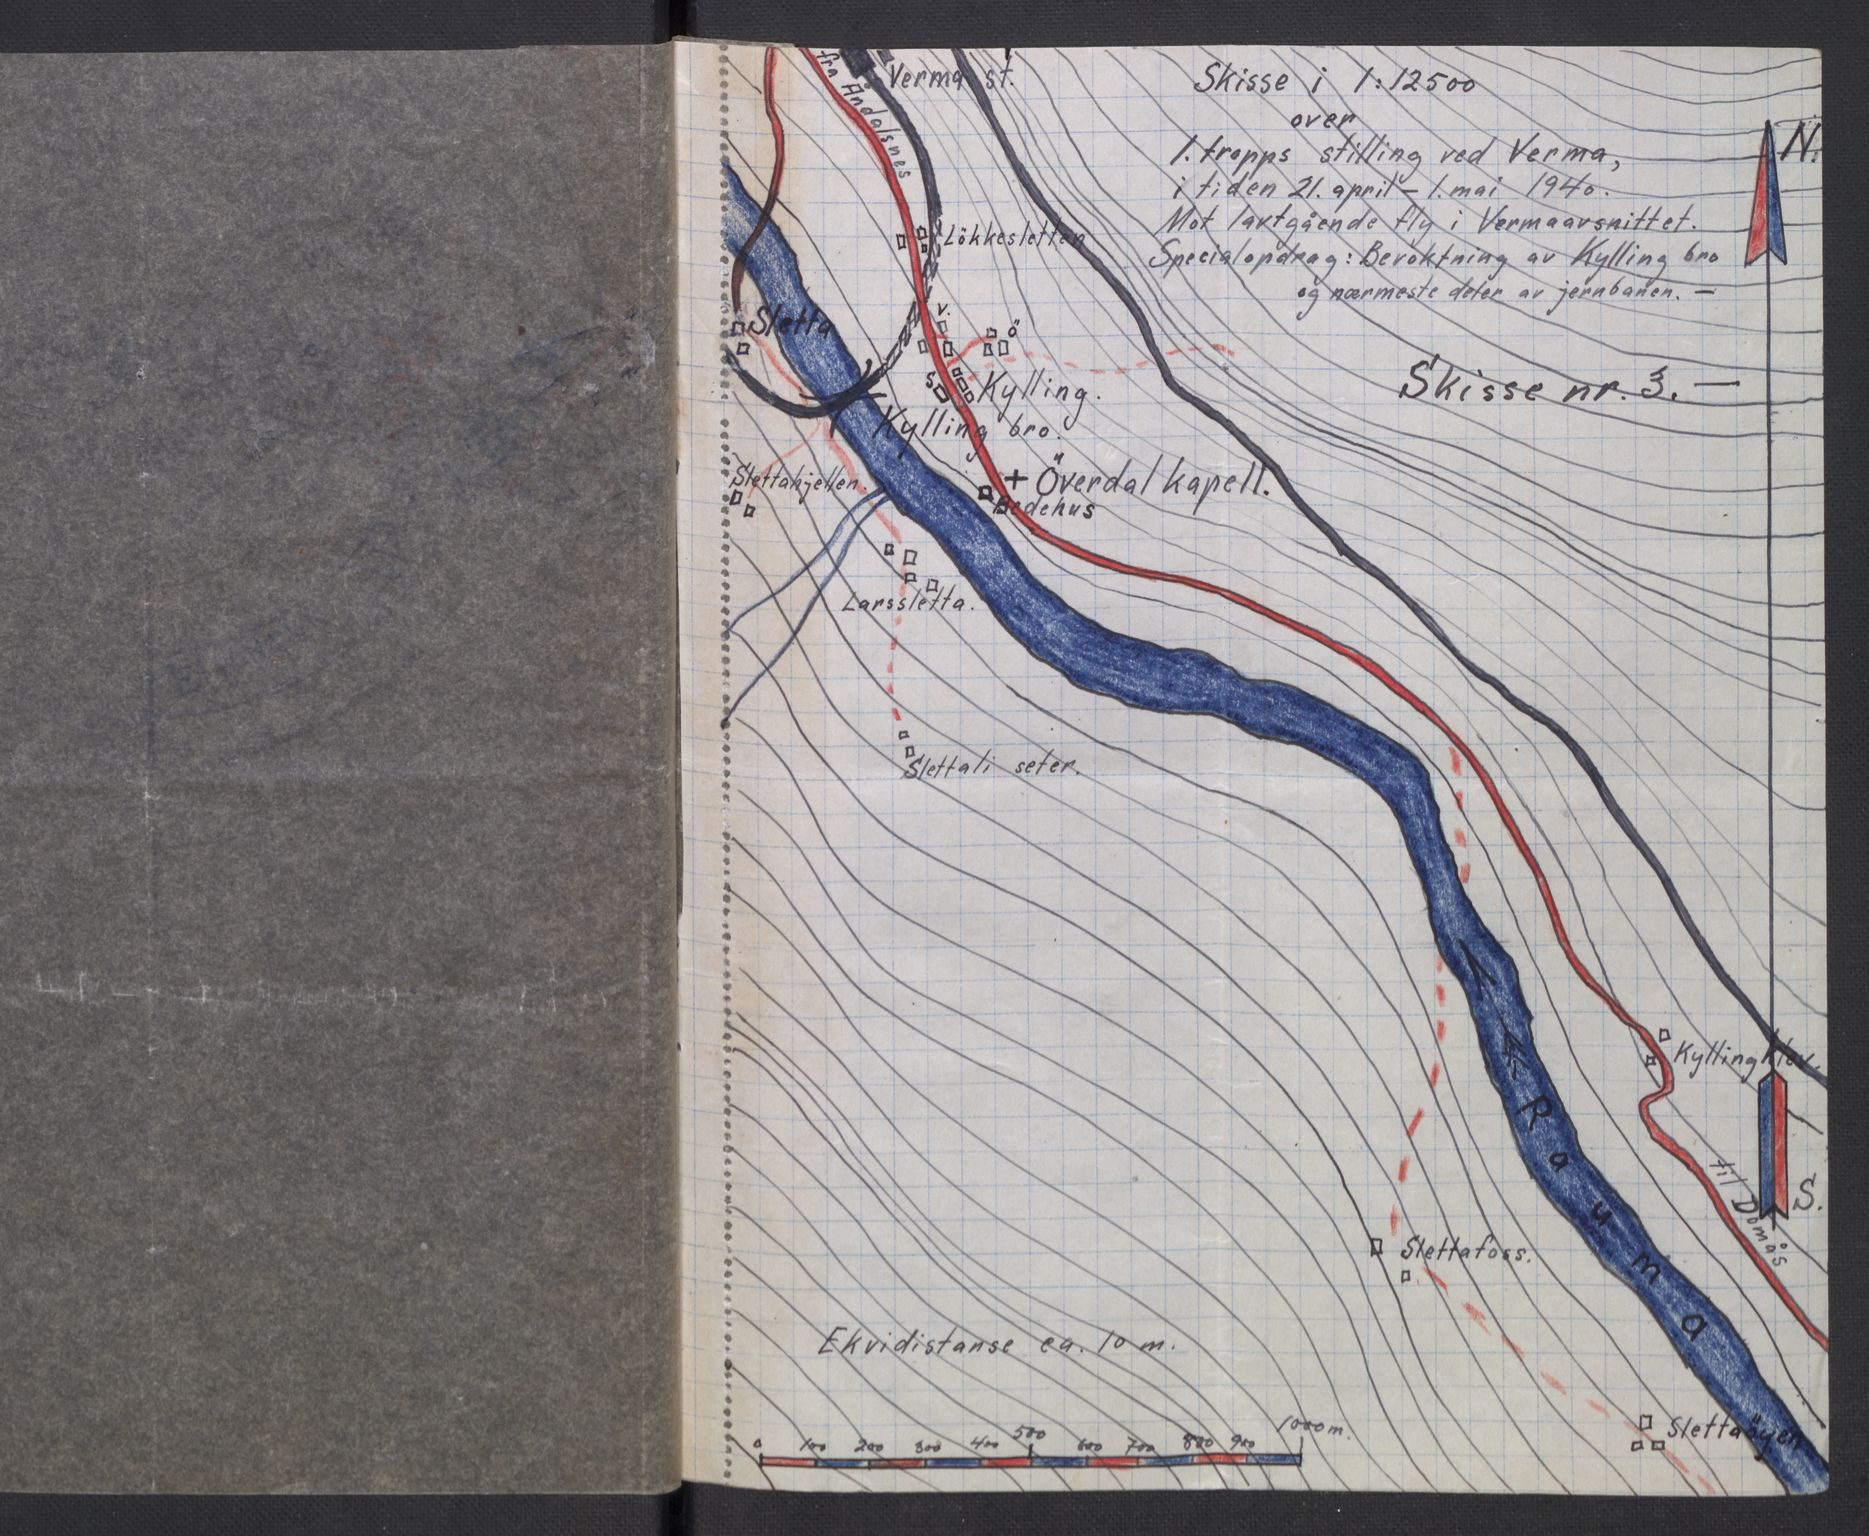 Skisse i 1:12500
over
1. tropps stilling ved Verma,
i tiden 21. april – 1. mai 1940.
Mot lavtgående fly i Vermaavsnittet.
Specialopdrag: Bevoktning av Kylling bro
og nærmeste deler av jernbanen. —
Skisse nr. 3. —
N.
Verma st.
fra Åndalsnes
Lökkesletten
Sletta
V.
Ö
S
Kylling.
Kylling bro.
+ Överdal kapell.
Bedehus
Slettahjellen.
Larssletta.
Slettali seter.
Kylling kløv.
til Domås
S.
Rauma
Slettafoss.
Slettaöyen
Ekvidistanse ca. 10 m.
0 100 200 300 400 500 600 700 800 900 1000 m.